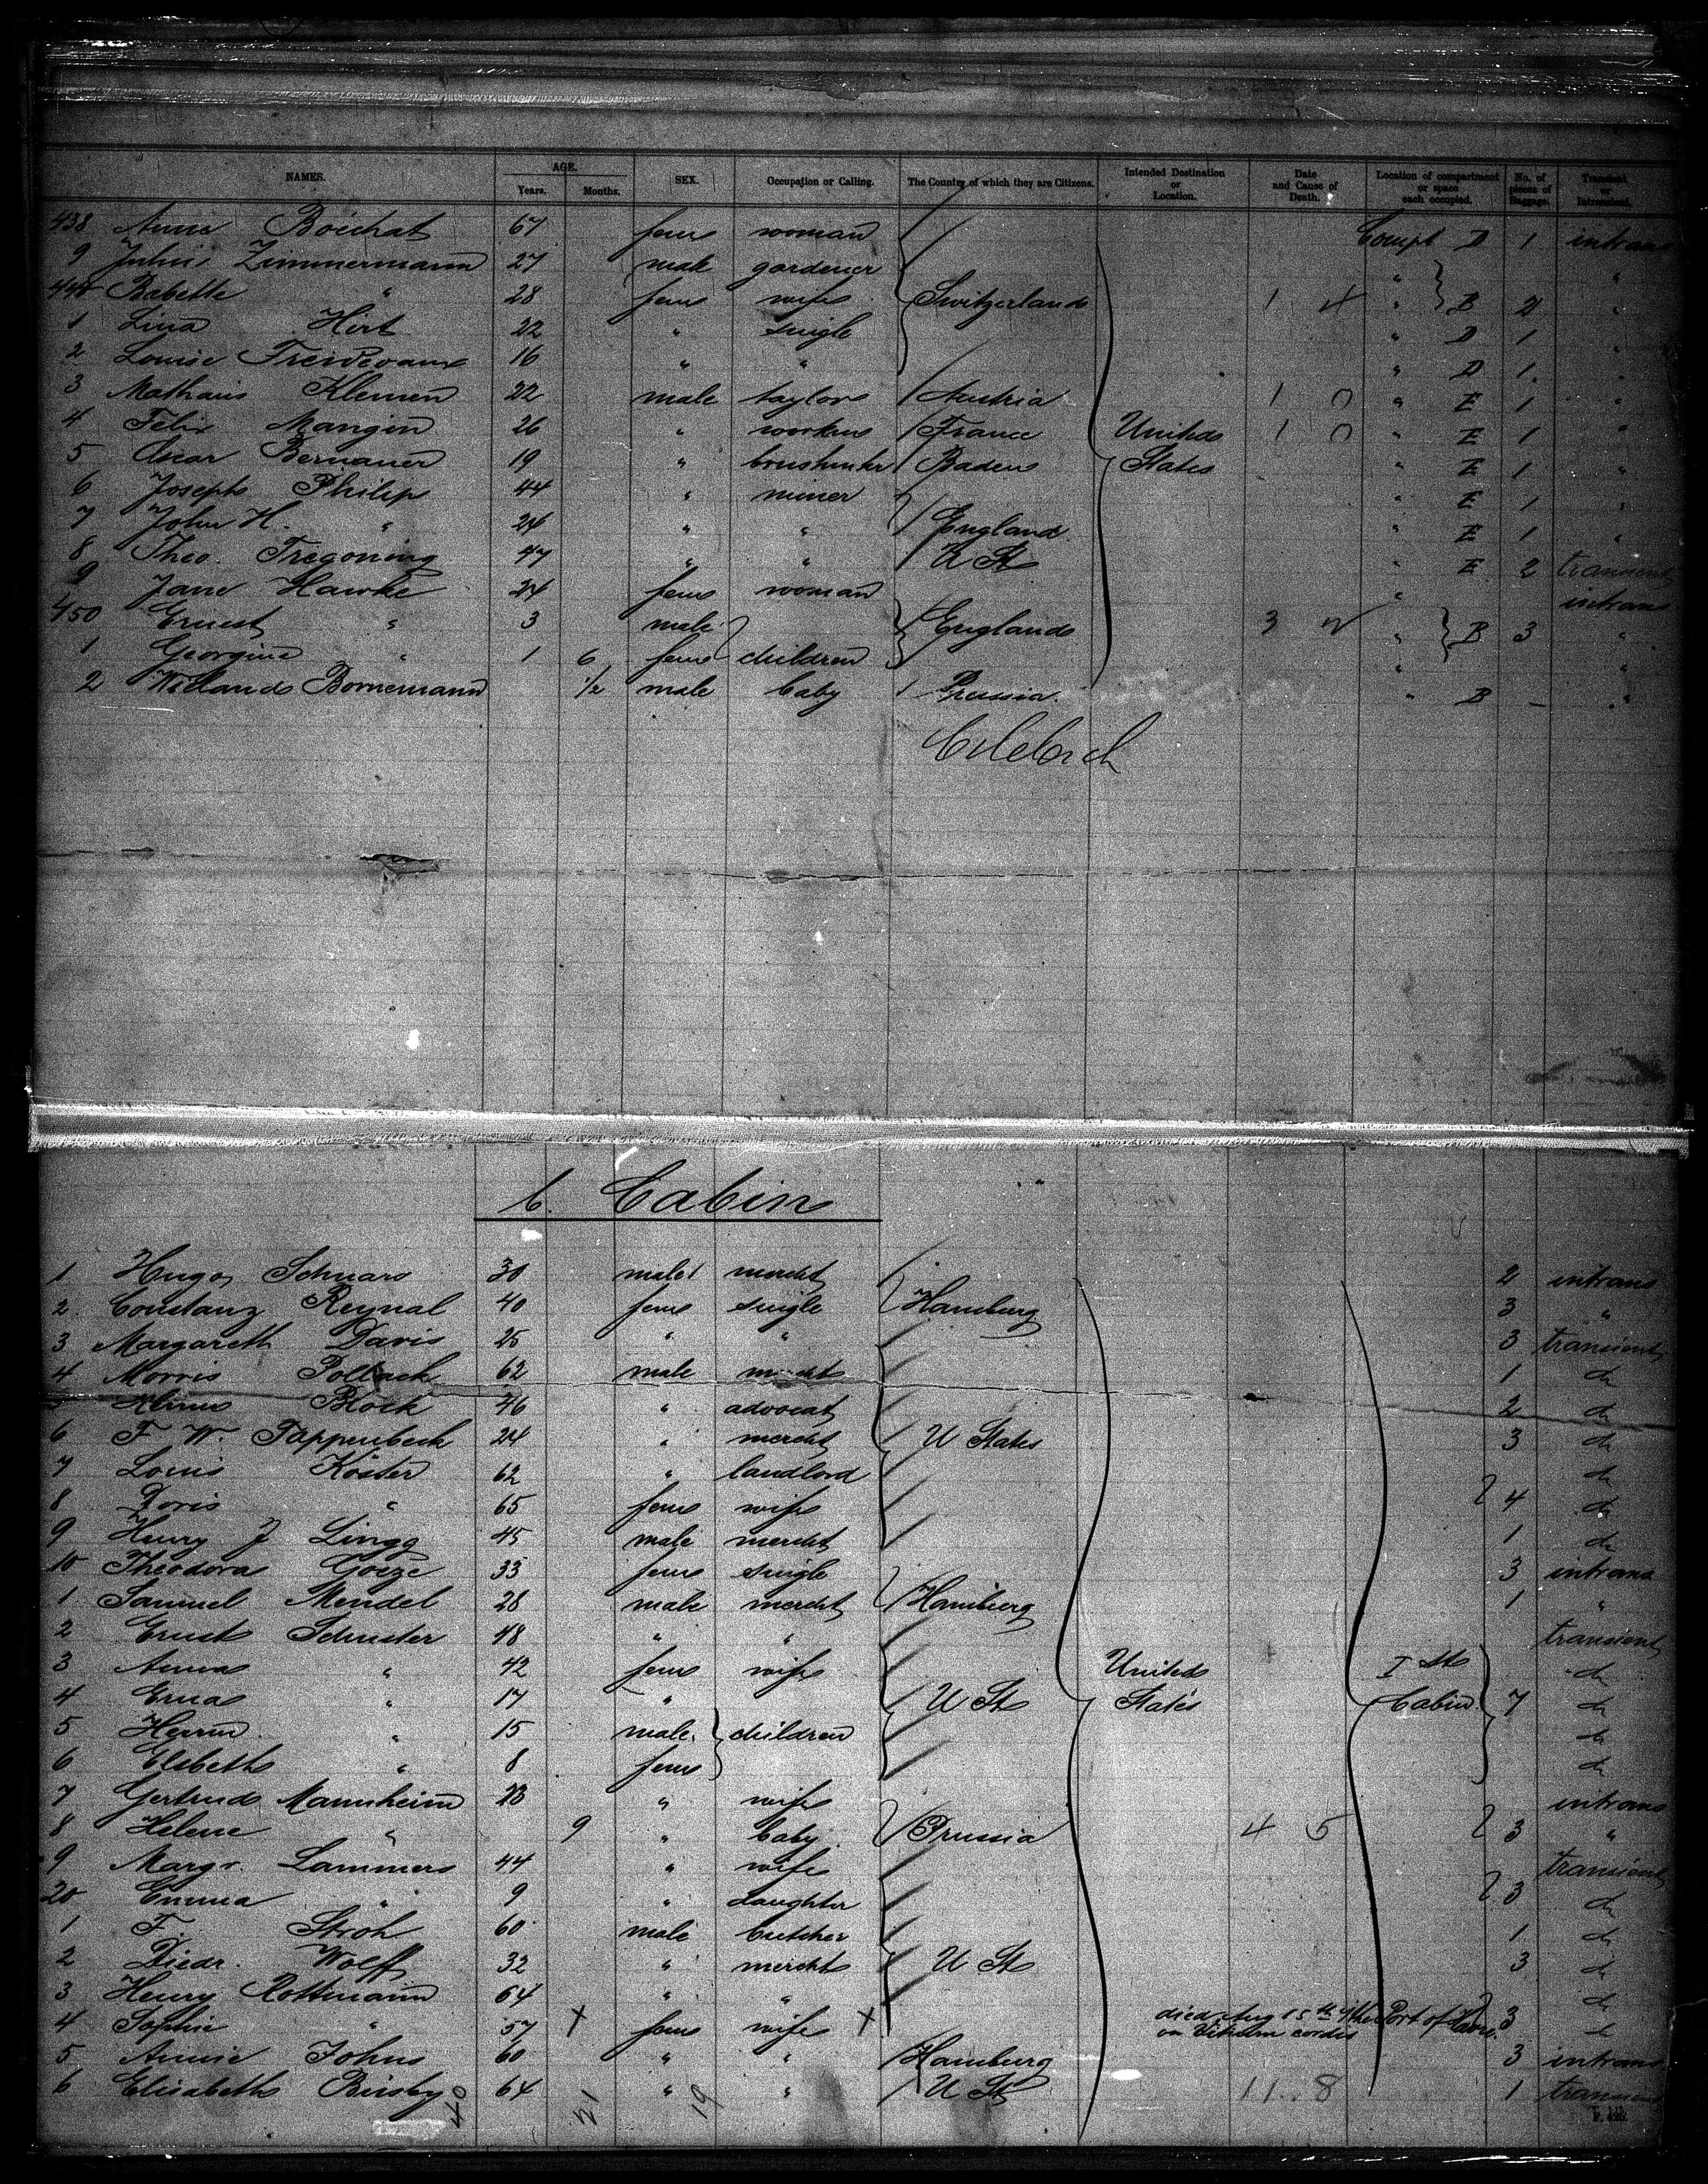 NAMES. AGE. Years. Months. SEX. Occupation or Calling. The Country of which they are Citizens. Intended Destination or Location. Date and Cause of Death. Location of compartment or space each occupied. No. of pieces of Baggage. Transient or Intransient.
438 Anna Boichat 67 fem woman Compt D 1 intrans
9 Julius Zimmermann 27 male gardener " "
440 Babette " 28 fem wife Switzerland 1 4 " B 2 "
1 Lina Hirt 22 " single " D 1 "
2 Louise 16 " " " D 1 "
3 Mathaus Klemen 22 male taylor Austria 1 0 " E 1 "
4 Felix Mangin 26 " worker France United 1 0 " E 1 "
5 Oscar Bernauer 19 " Baden States " E 1 "
6 Joseph Philip 44 " miner " E 1 "
7 John H. " 24 " " England " E 1 "
8 Theo. Tregoning 47 " " U St " E 2 transient
9 Jane Hawke 24 fem woman " intrans
450 Ernest " 3 male England 3 " B 3 "
1 Georgina " 1 6 fem children " "
2 Wielands Bornemann 1/2 male baby Prussia " B - "
b. Cabin
1 Hugo Schwars 30 male mercht 2 intrans
2 Constanz Reynal 40 fem single Hamburg 3 "
3 Margareth Davis 25 " " 3 transient
4 Morris Pollack 62 male mercht 1 do
Block 46 " advocat 2 do
6 F W. Tappenbeck 24 " mercht U States 3 do
7 Louis Köster 62 " landlord do
8 Doris " 65 fem wife 4 do
9 Henry J Lingg 45 male mercht 1 do
10 Theodora Goeze 33 fem single 3 intrans
1 Samuel Mendel 28 male mercht Hamburg 1 "
2 Ernst Schuster 48 " " transient
3 Anna " 42 fem wife United I St do
4 Erna " 17 " U St States Cabin 7 do
5 Herm. " 15 male children do
6 Elsbeth " 8 fem do
7 Gertrud Mannheim 23 " wife intrans
8 Helene " 9 " baby Prussia 4 5 3 "
9 Margr. Lammers 44 " wife transient
20 Emma " 9 " daughter 3 do
1 F. Stroh 60 male butcher 1 do
2 Diedr. Wolff 32 " mercht U St 3 do
3 Henry Rottmann 64 " " do
4 Sophie " 57 X fem wife X died Aug 15th of the Port of 3 do
on cordis
5 Annie Johns 60 " " Hamburg 3 intrans
6 Elisabeth Birsby 64 " " U St 11 8 1 transient
40 21 19